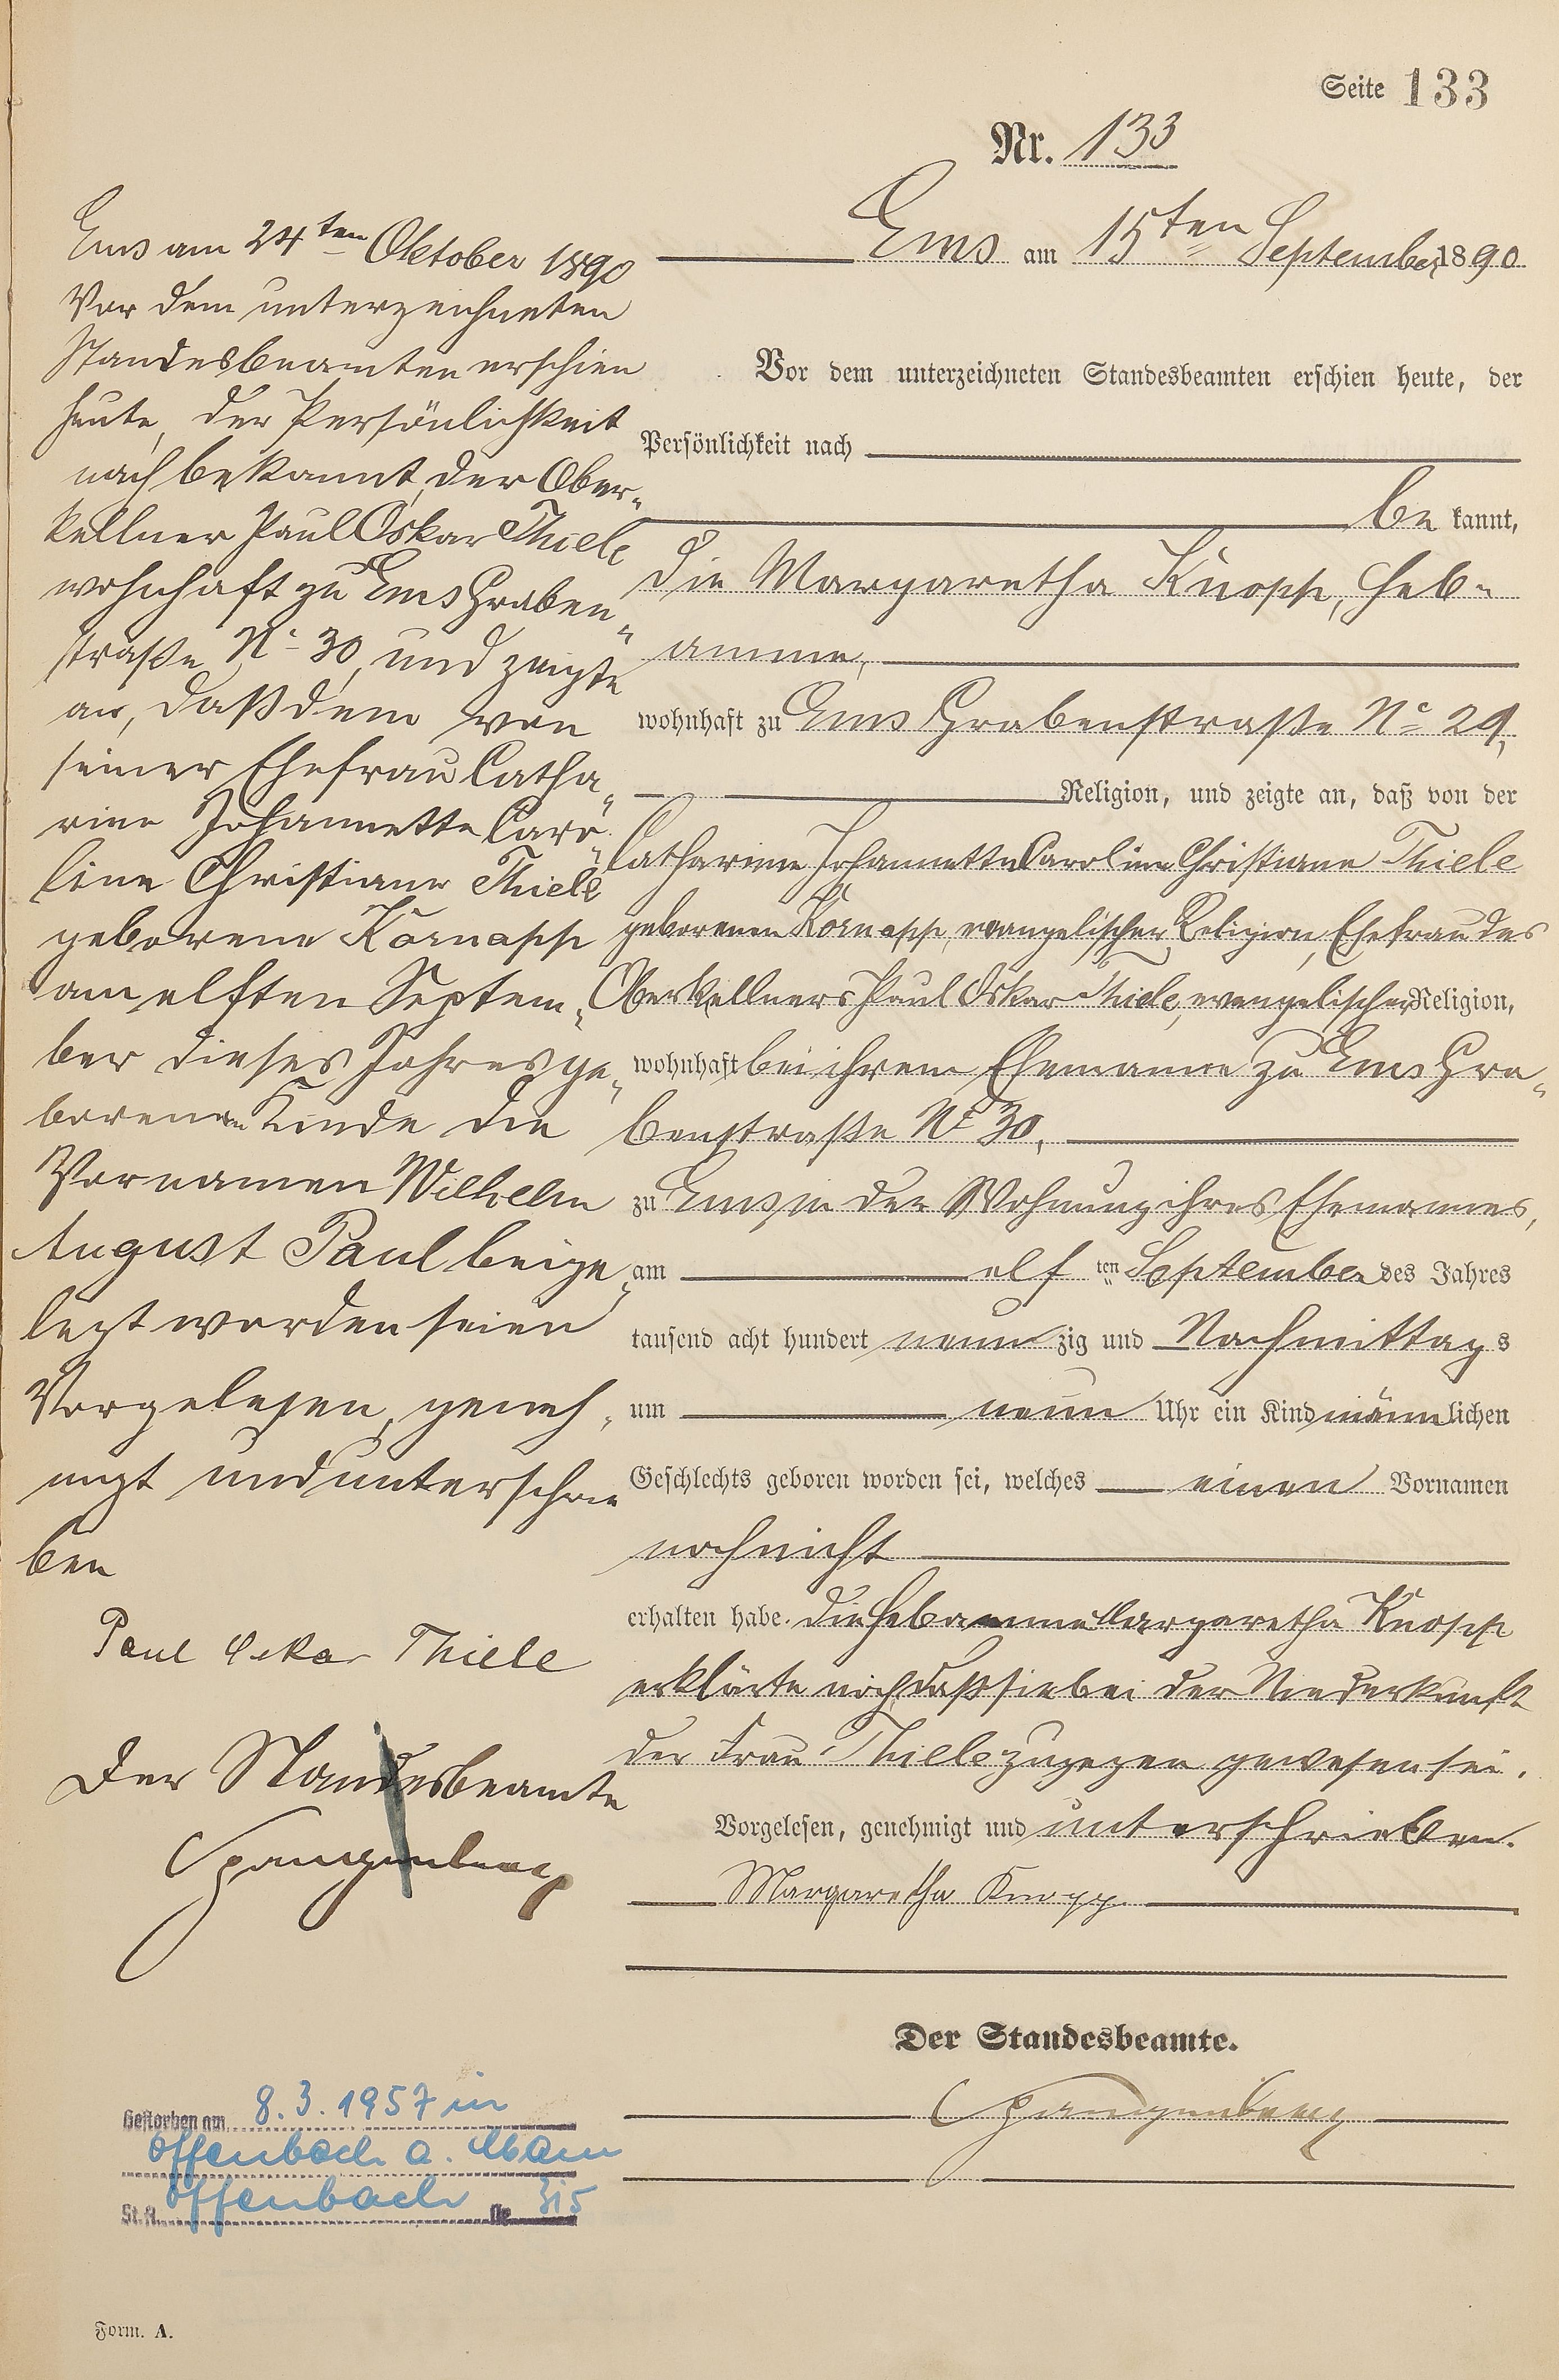 Seite 133
Nr. 133
Ems am 15ten September 1890
Vor dem unterzeichneten Standesbeamten erschien heute, der
Persönlichkeit nach
be kannt,
die Margaretha Knopp, Heb-
amme,
wohnhaft zu Ems Grabenstraße No 29,
Religion, und zeigte an, daß von der
Catharine Johannette Caroline Christiane Thiele
geborenen Kornapp, evangelischer Religion, Ehefrau des
Oberkellners Paul Oskar Thiele, evangelischer Religion,
wohnhaft bei ihrem Ehemanne zu Ems Gra-
benstraße No 30,
zu Ems in der Wohnung ihres Ehemannes,
am elf ten September des Jahres
tausend acht hundert neun zig und Nachmittags
um neun Uhr ein Kind männlichen
Geschlechts geboren worden sei, welches einen Vornamen
noch nicht
erhalten habe. Die Hebamme Margaretha Knopp
erklärte noch, daß sie bei der Niederkunft
der Frau Thiele zugegen gewesen sei.
Vorgelesen, genehmigt und unterschrieben.
Margaretha Knopp.
Der Standesbeamte.
Spangenberg
Ems am 24ten Oktober 1890
Vor dem unterzeichneten
Standesbeamten erschien
heute, der Persönlichkeit
nach bekannt, der Ober-
kellner Paul Oskar Thiele
wohnhaft zu Ems Graben-
straße No 30, und zeigte
an, daß dem von
seiner Ehefrau Catha-
rine Johannette Caro-
line Christiane Thiele
geborene Kornapp
am elften Septem-
ber dieses Jahres ge-
borenen Kinde die
Vornamen Wilhelm
August Paul beige-
legt worden seien
Vorgelesen, geneh-
migt und unterschrie
ben
Paul Oskar Thiele
Der Standesbeamte
Spangenberg
Gestorben am 8.3.1957 in
Offenbach a. Main
St.A. Offenbach Nr. 315
Form. A.